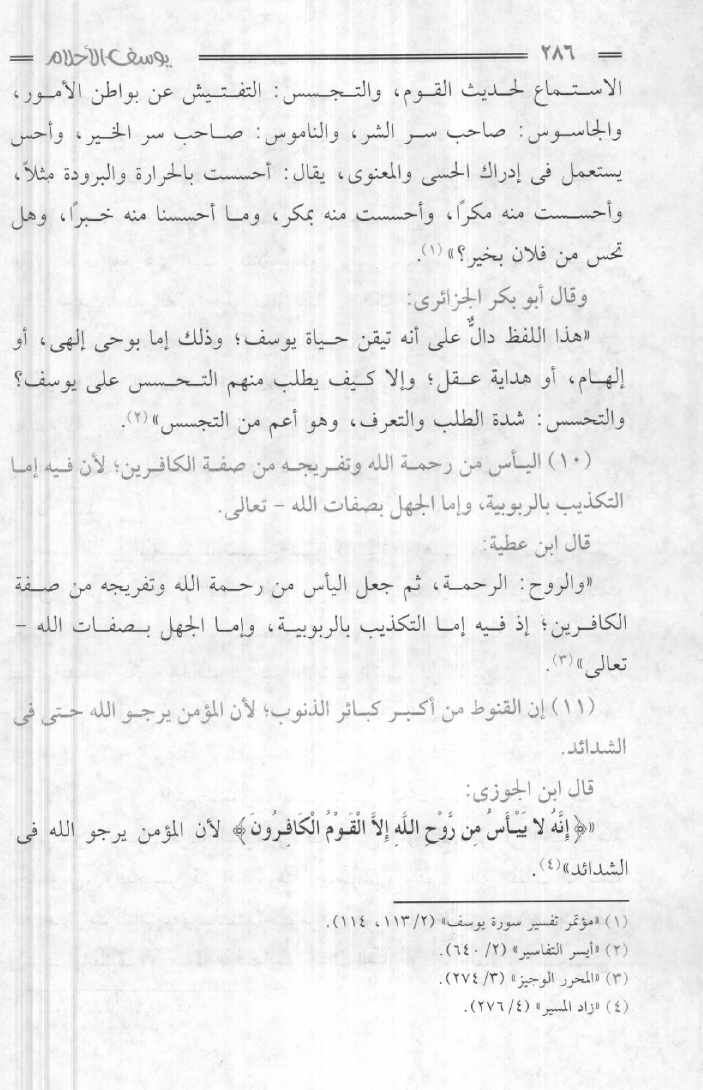 ٢٨٦ يوسف الأحلام
الاستماع لحديث القوم، والتجسس: التفتيش عن بواطن الأمور،
والجاسوس: صاحب سر الشر، والناموس: صاحب سر الخير، وأحس
يستعمل فى إدراك الحسى والمعنوى، يقال: أحسست بالحرارة والبرودة مثلاً،
وأحسست منه مكرًا، وأحسست منه بمكر، وما أحسسنا منه خبرًا، وهل
تحس من فلان بخير؟»(١).
وقال أبو بكر الجزائرى:
«هذا اللفظ دالٌّ على أنه تيقن حياة يوسف؛ وذلك إما بوحى إلهى، أو
إلهام، أو هداية عقل؛ وإلا كيف يطلب منهم التحسس على يوسف؟
والتحسس: شدة الطلب والتعرف، وهو أعم من التجسس»(٢).
(١٠) اليأس من رحمة الله وتفريجه من صفة الكافرين؛ لأن فيه إما
التكذيب بالربوبية، وإما الجهل بصفات الله - تعالى.
قال ابن عطية:
«والروح: الرحمة، ثم جعل اليأس من رحمة الله وتفريجه من صفة
الكافرين؛ إذ فيه إما التكذيب بالربوبية، وإما الجهل بصفات الله -
تعالى»(٣).
(١١) إن القنوط من أكبر كبائر الذنوب؛ لأن المؤمن يرجو الله حتى فى
الشدائد.
قال ابن الجوزى:
«﴿إِنَّهُ لا يَيْأَسُ مِن رَّوْحِ اللَّهِ إِلاَّ الْقَوْمُ الْكَافِرُونَ﴾ لأن المؤمن يرجو الله فى
الشدائد»(٤).
(١) «مؤتمر تفسير سورة يوسف» (٢/ ١١٣، ١١٤).
(٢) «أيسر التفاسير» (٢/ ٦٤٠).
(٣) «المحرر الوجيز» (٣/ ٢٧٤).
(٤) «زاد المسير» (٤/ ٢٧٦).